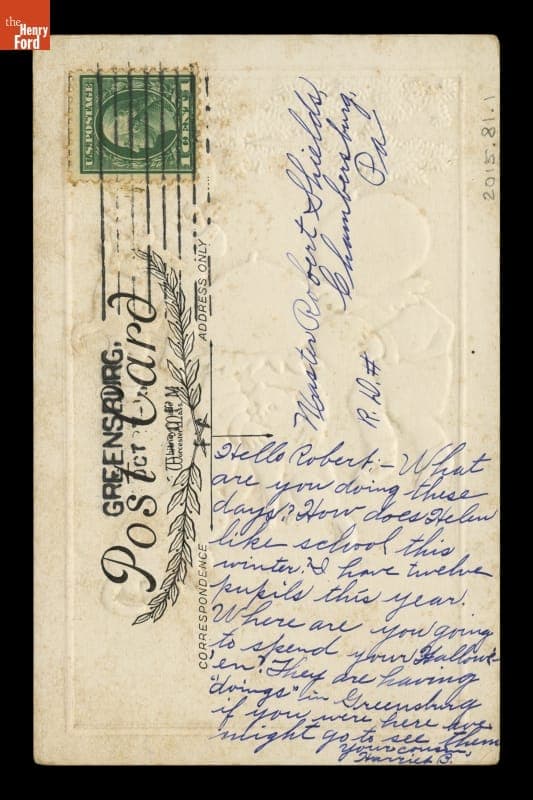 the
Henry
Ford
U.S. POSTAGE
1 CENT 1
GREENSBURG,
OCT
Post Card
ADDRESS ONLY
CORRESPONDENCE
Master Robert Shields,
Chambersburg,
Pa
R.D. #
2015.81.1
Hello Robert:- What
are you doing these
days? How does Helen
like school this
winter? I have twelve
pupils this year.
Where are you going
to spend your Hallow-
'en? They are having
"doings" in Greensburg
if you were here we
might go to see them
Your cousin,
Harriet B.